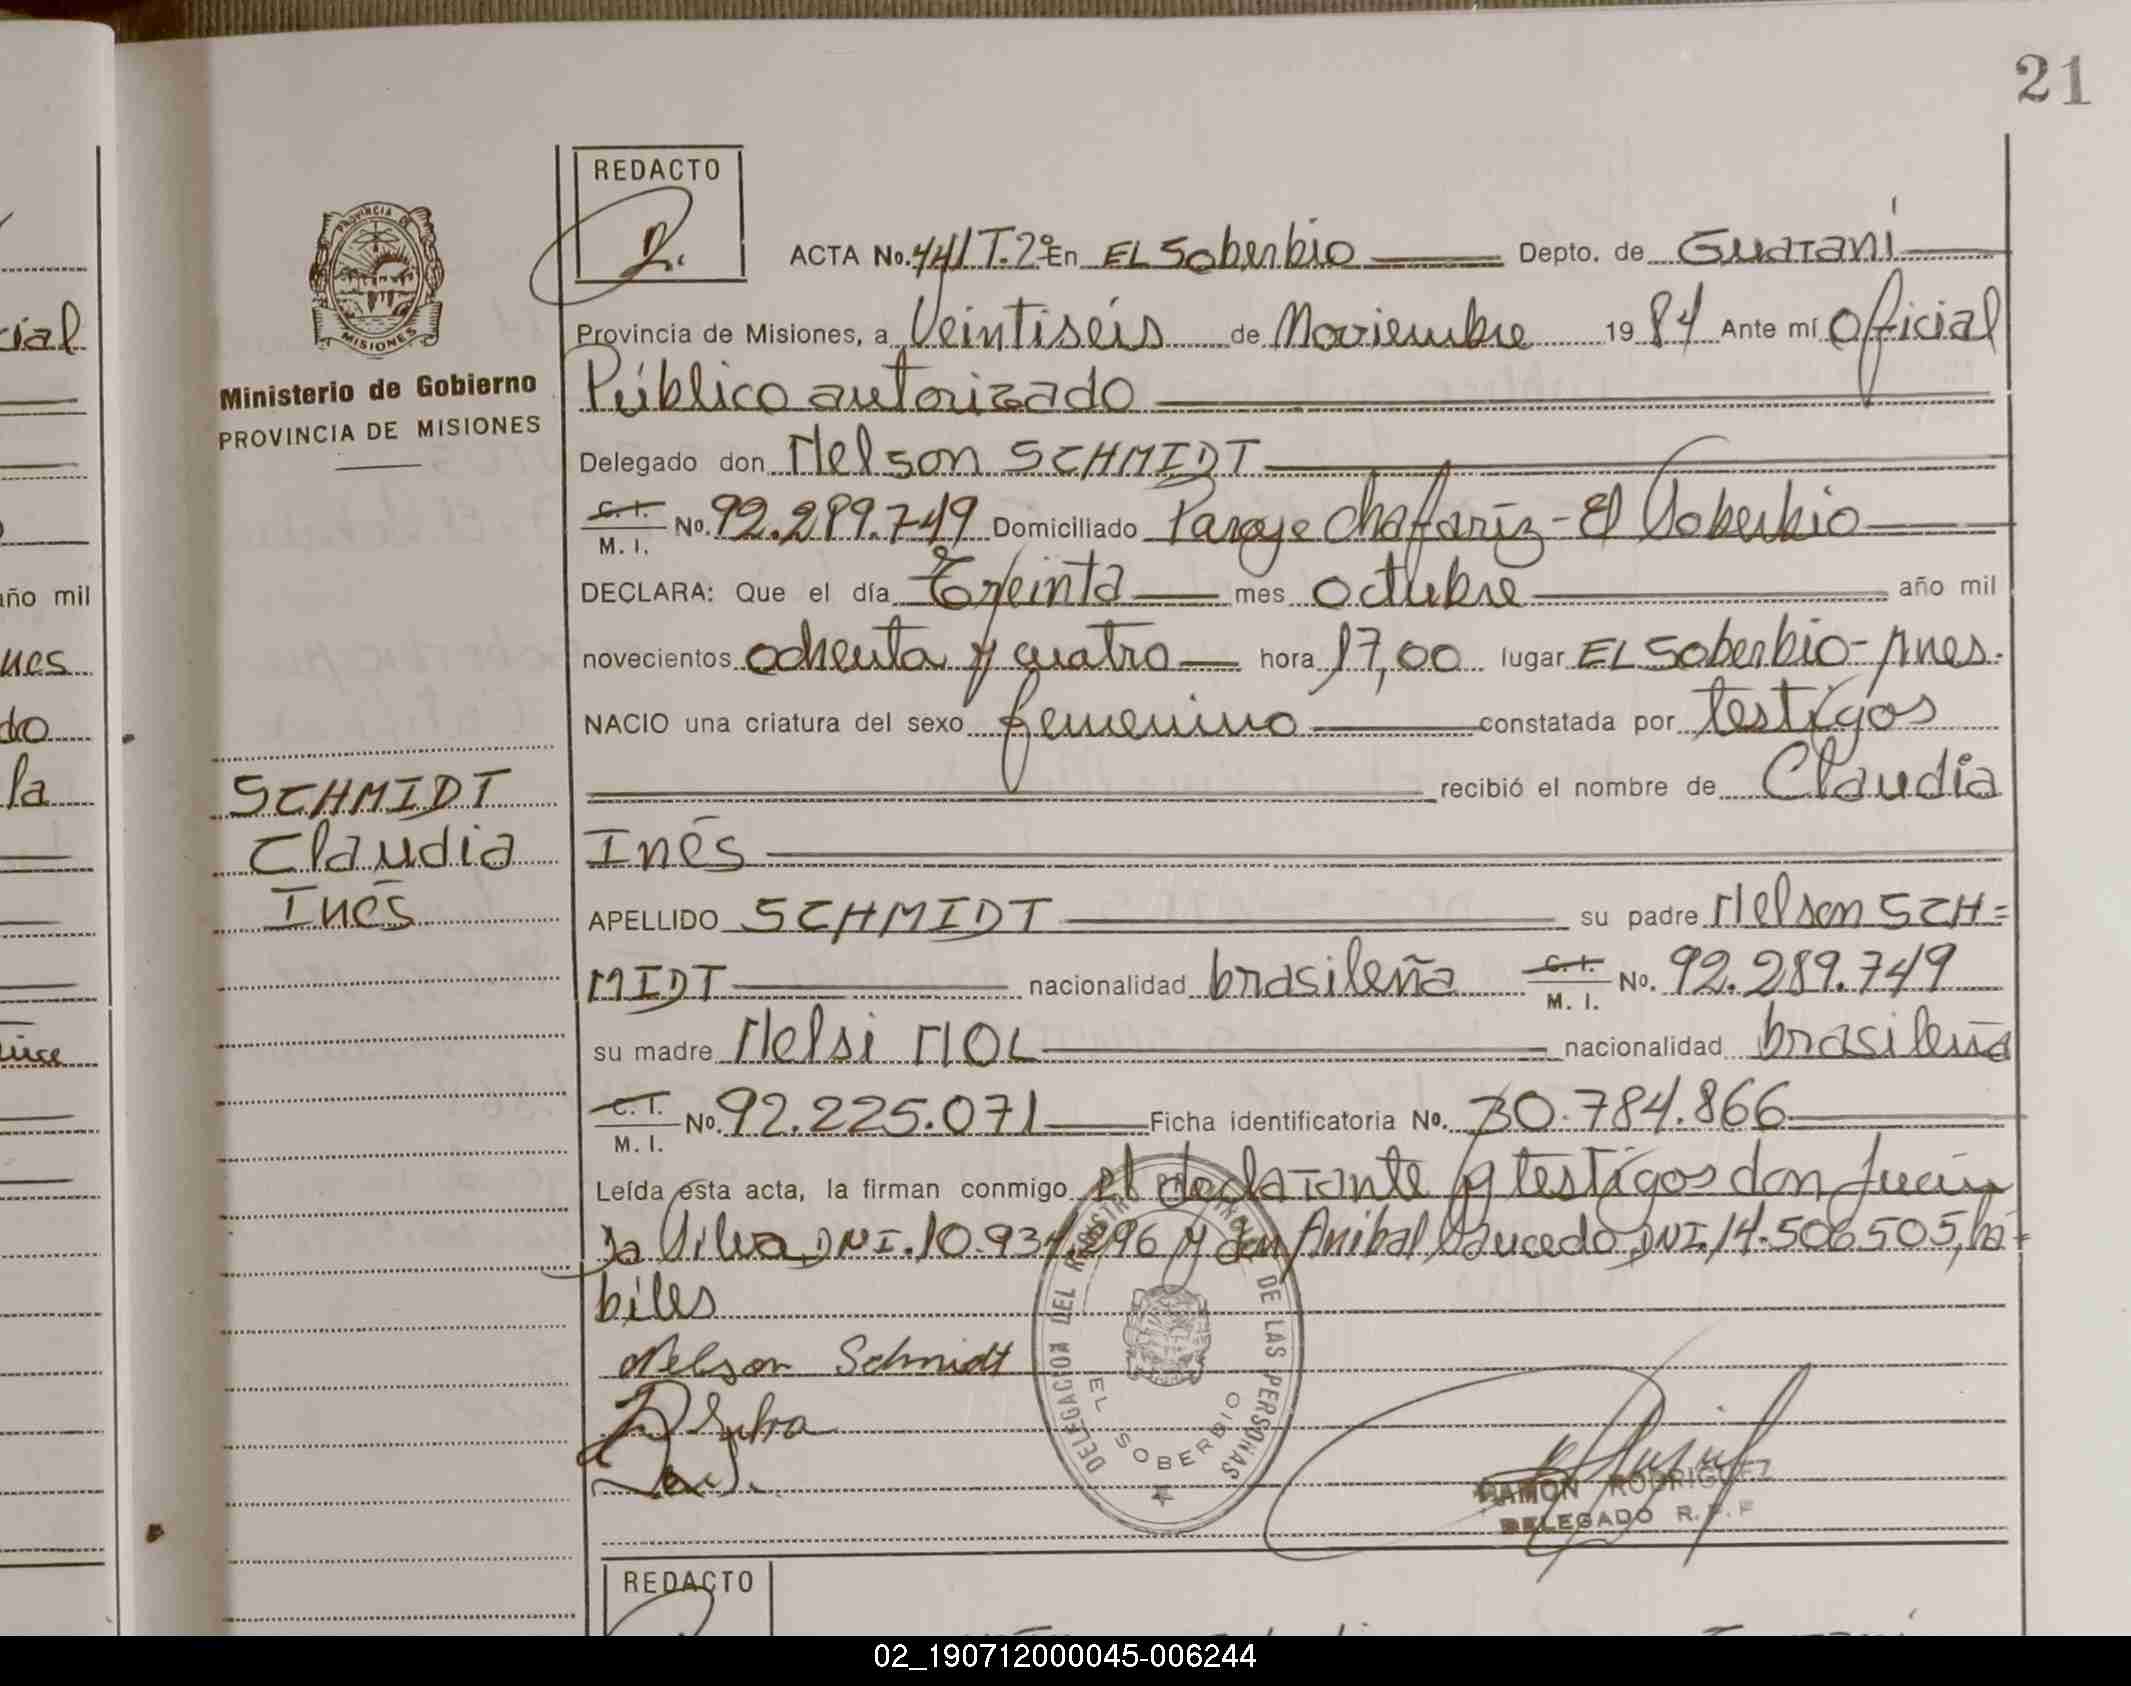 21
REDACTO
ACTA No. 441 T.2º En EL Soberbio Depto. de Guaraní
Provincia de Misiones, a Veintiséis de Noviembre 1984 Ante mí Oficial
Público autorizado
Delegado don Nelson SCHMIDT
C. I. M. I. No. 92.289.749 Domiciliado Paraje Chafariz - El Soberbio
DECLARA: Que el día Treinta mes octubre año mil
novecientos ochenta y cuatro hora 17,00 lugar EL Soberbio - Mnes.
NACIO una criatura del sexo femenino constatada por testigos
recibió el nombre de Claudia
Inés
APELLIDO SCHMIDT su padre Nelson SCH=
MIDT nacionalidad brasileña C. I. M. I. No. 92.289.749
su madre Nelsi NOL nacionalidad brasileña
C. I. M. I. No. 92.225.071 Ficha identificatoria No. 30.784.866
Leída esta acta, la firman conmigo el declarante y testigos don
da Silva, DNI. 10.934. 96 y don Anibal Saucedo, DNI. 14.506.505, há-
biles
Nelson Schmidt
D Sylva
DELEGACION DEL REGISTRO PROVINCIAL DE LAS PERSONAS
EL SOBERBIO
RAMON RODRIGUEZ
DELEGADO R.P.P
PROVINCIA DE
MISIONES
Ministerio de Gobierno
PROVINCIA DE MISIONES
SCHMIDT
Claudia
Inés
cial
año mil
nes
do
la
REDACTO
02_190712000045-006244